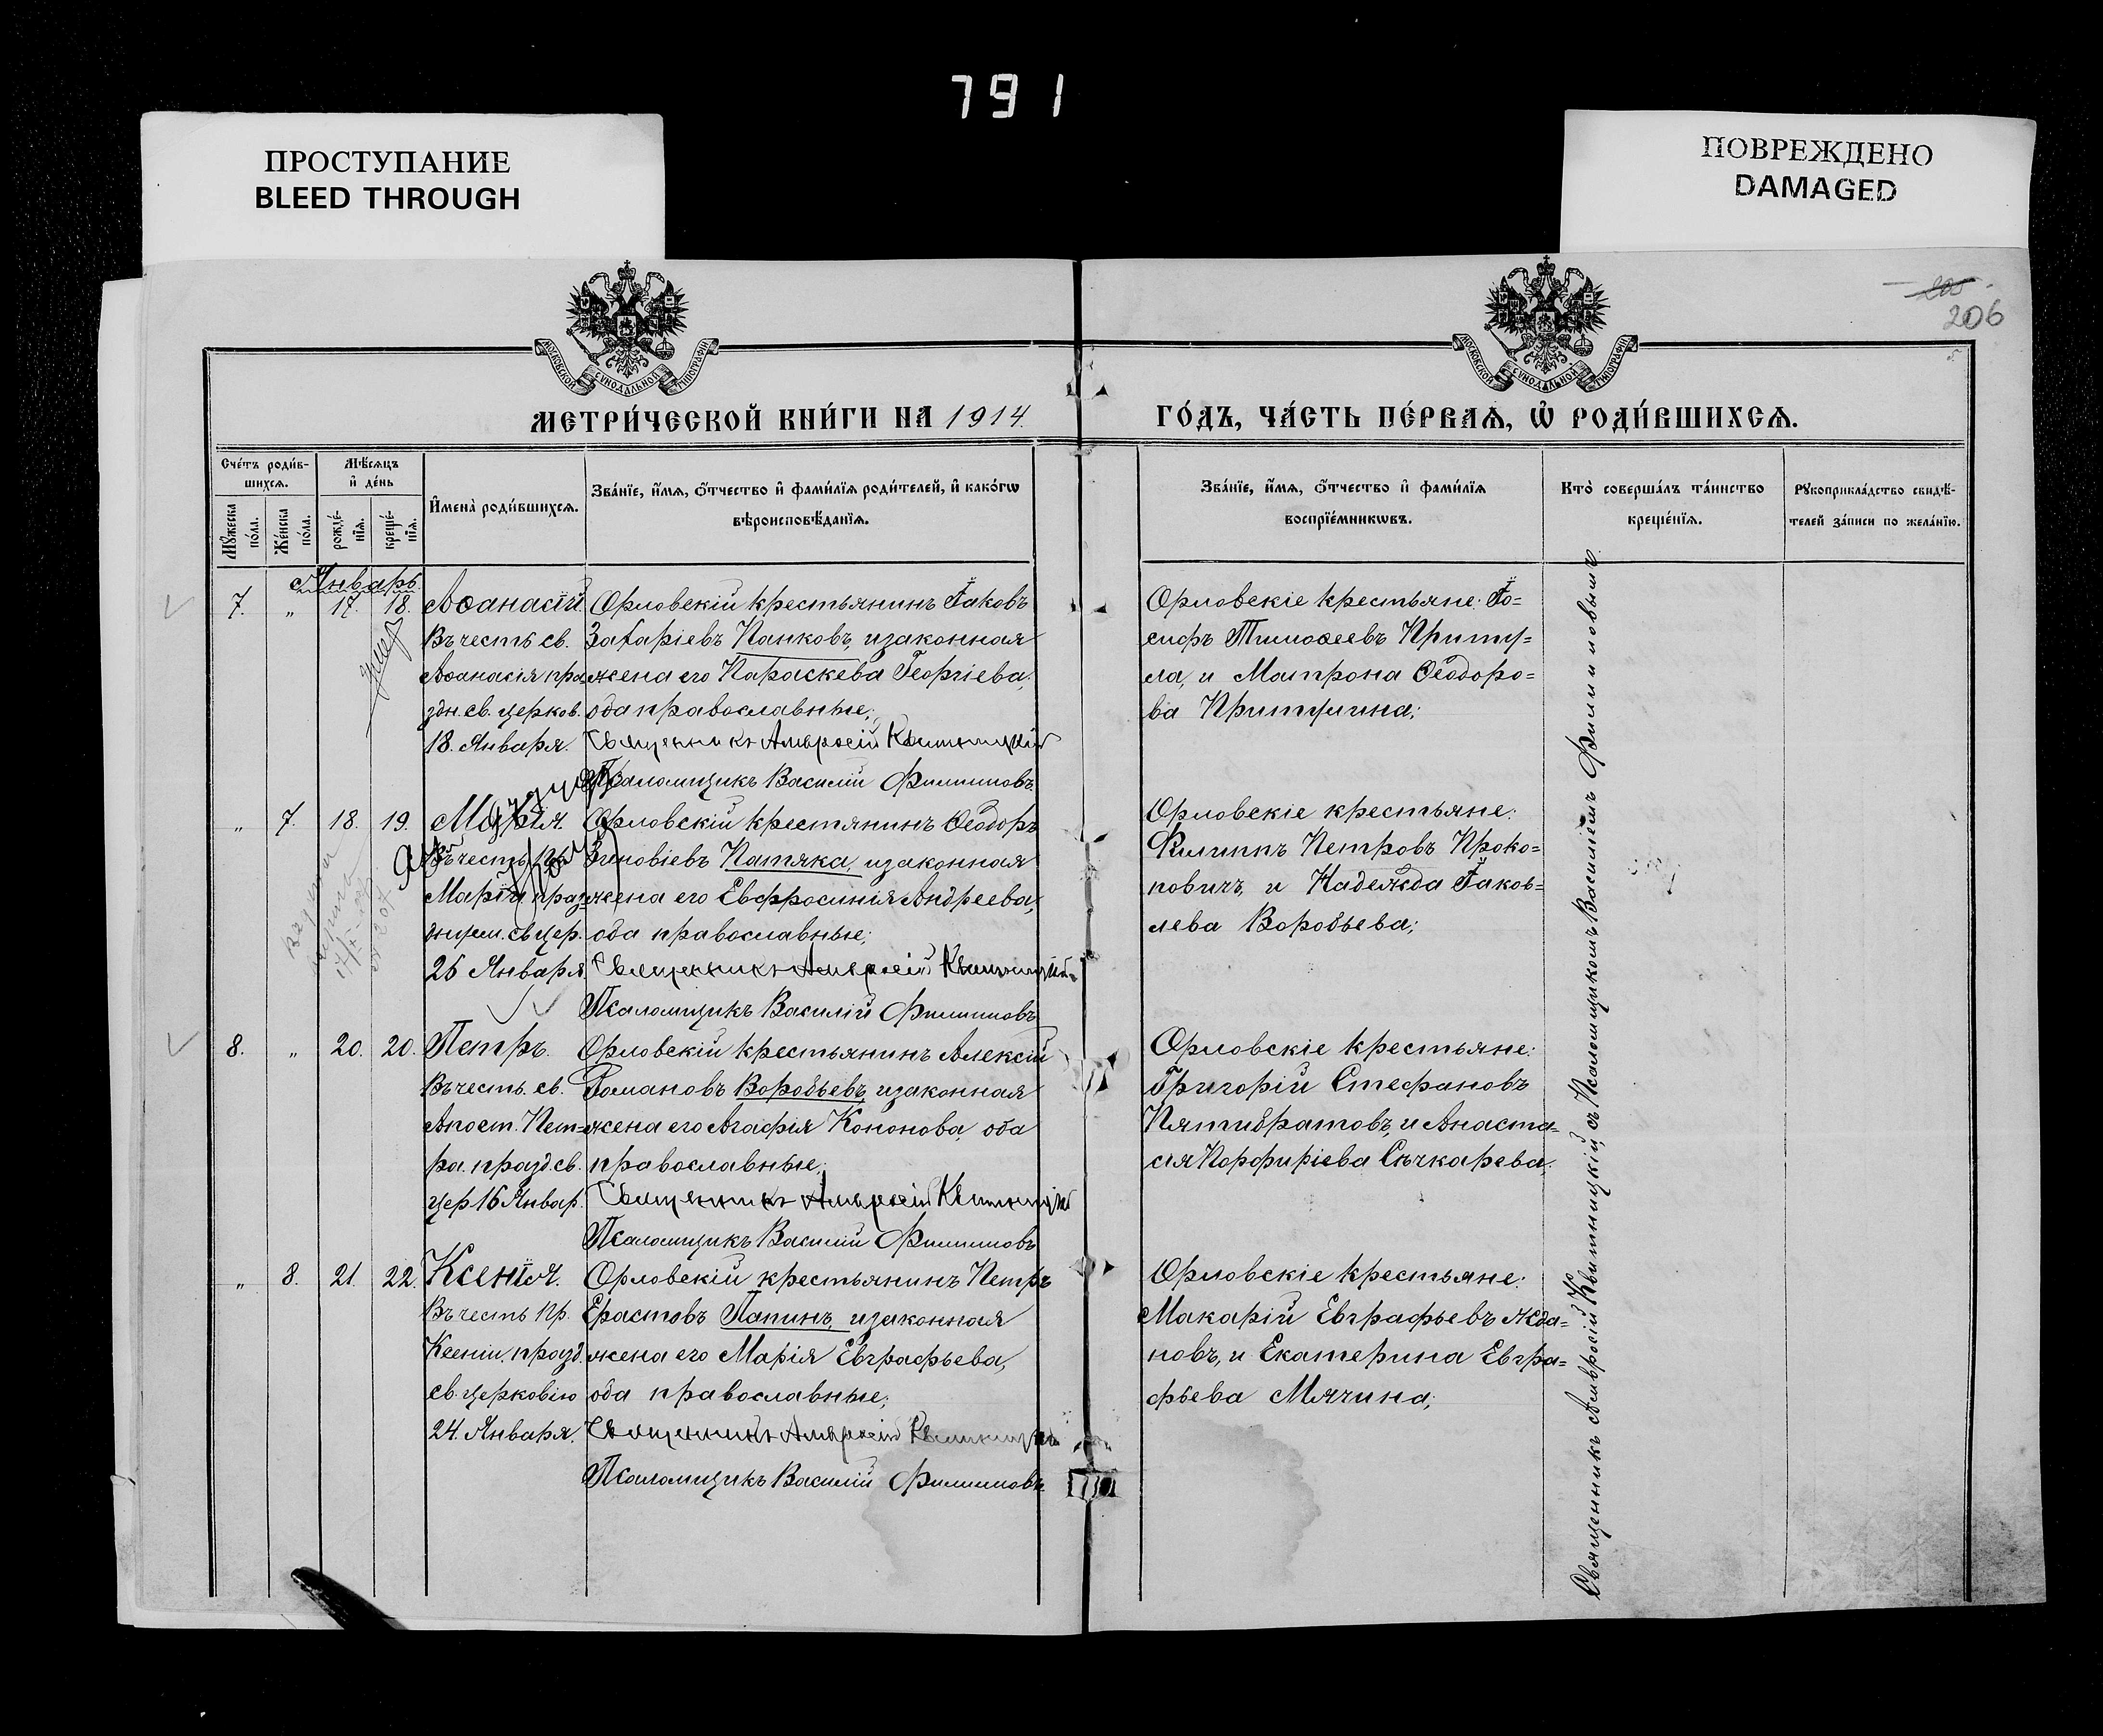 791
ПРОСТУПАНИЕ
BLEED THROUGH
ПОВРЕЖДЕНО
DAMAGED
206
5
МОСКОВСКОЙ СѴНОДАЛЬНОЙ ТИПОГРАФІИ
МОСКОВСКОЙ СѴНОДАЛЬНОЙ ТИПОГРАФІИ
МЕТРИ́ЧЕСКОЙ КНИ́ГИ НА 1914
ГО́ДЪ, ЧА́СТЬ ПЕ́РВАѦ, Ѡ҆ РОДИ́ВШИХСѦ.
Сче́тъ роди́в-
шихсѧ.
Мѣ́сѧцъ
и҆ де́нь
Мꙋ́жеска по́ла.
Же́нска по́ла.
рожде́-
нїѧ.
креще́-
нїѧ.
И҆мена̀ роди́вшихсѧ.
Зва́нїе, и҆́мѧ, ѻ҆́тчество и҆ фами́лїѧ роди́телей, и҆ како́гѡ
вѣроисповѣ́данїѧ.
Зва́нїе, и҆́мѧ, ѻ҆́тчество и҆ фами́лїѧ
воспрїе́мникѡвъ.
Кто̀ соверша́лъ та́инство
креще́нїѧ.
Рꙋкоприкла́дство свидѣ́-
телей за́писи по жела́нїю.
Январь
7. „ 17. 18.
Аѳанасій
Въ честь св.
Аѳанасія пра
здн. св. церков.
18. Января.
умер
Орловскій крестьянинъ Іаковъ
Захаріевъ Панковъ, и законная
жена его Параскева Георгіева,
оба православные;
Священникъ Амвросій Квитницкій
Псаломщикъ Василій Филипповъ.
Орловскіе крестьяне: Іо=
сифъ Тимоѳеевъ Приту=
ла, и Матрона Ѳеодоро=
ва Притулина;
„ 7. 18. 19.
Марія.
Въ честь Пр.
Маріи праз=
днуем. св. цер.
26 Января.
Орловскій крестянинъ Ѳеодоръ
Зиновіевъ Патяка, и законная
жена его Евфросинія Андреева,
оба православные;
Священникъ Амвросій Квитницкій
Псаломщикъ Василій Филипповъ
Орловскіе крестьяне:
Филиппъ Петровъ Проко=
повичъ, и Надежда Іаков=
лева Воробьева;
8. „ 20. 20.
Петръ.
Въ честь. св.
Апост. Пет=
ра. празд. св.
цер 16 Январ.
Орловскій крестьянинъ Алексій
Романовъ Воробьевъ, и законная
жена его Агафія Кононова, оба
православные;
Священникъ Амвросій Квитницкій
Псаломщикъ Василій Филипповъ
Орловскіе крестьяне:
Григорій Стефановъ
Пятибратовъ, и Анаста=
сія Порфиріева Сѣчкарева.
„ 8. 21. 22.
Ксенія.
Въ честь Пр.
Ксеніи, празд.
св. церковію
24. Января.
Орловскій крестьянинъ Петръ
Ерастовъ Папинъ, и законная
жена его Марія Евграфьева,
оба православные;
Священникъ Амвросій Квитницкій
Псаломщикъ Василій Филипповъ
Орловскіе крестьяне:
Макарій Евграфьевъ Жда=
новъ, и Екатерина Евгра=
фьева Мячина;
Священникъ Амвросій Квитницкій, съ Псаломщикомъ Василіемъ Филипповымъ.